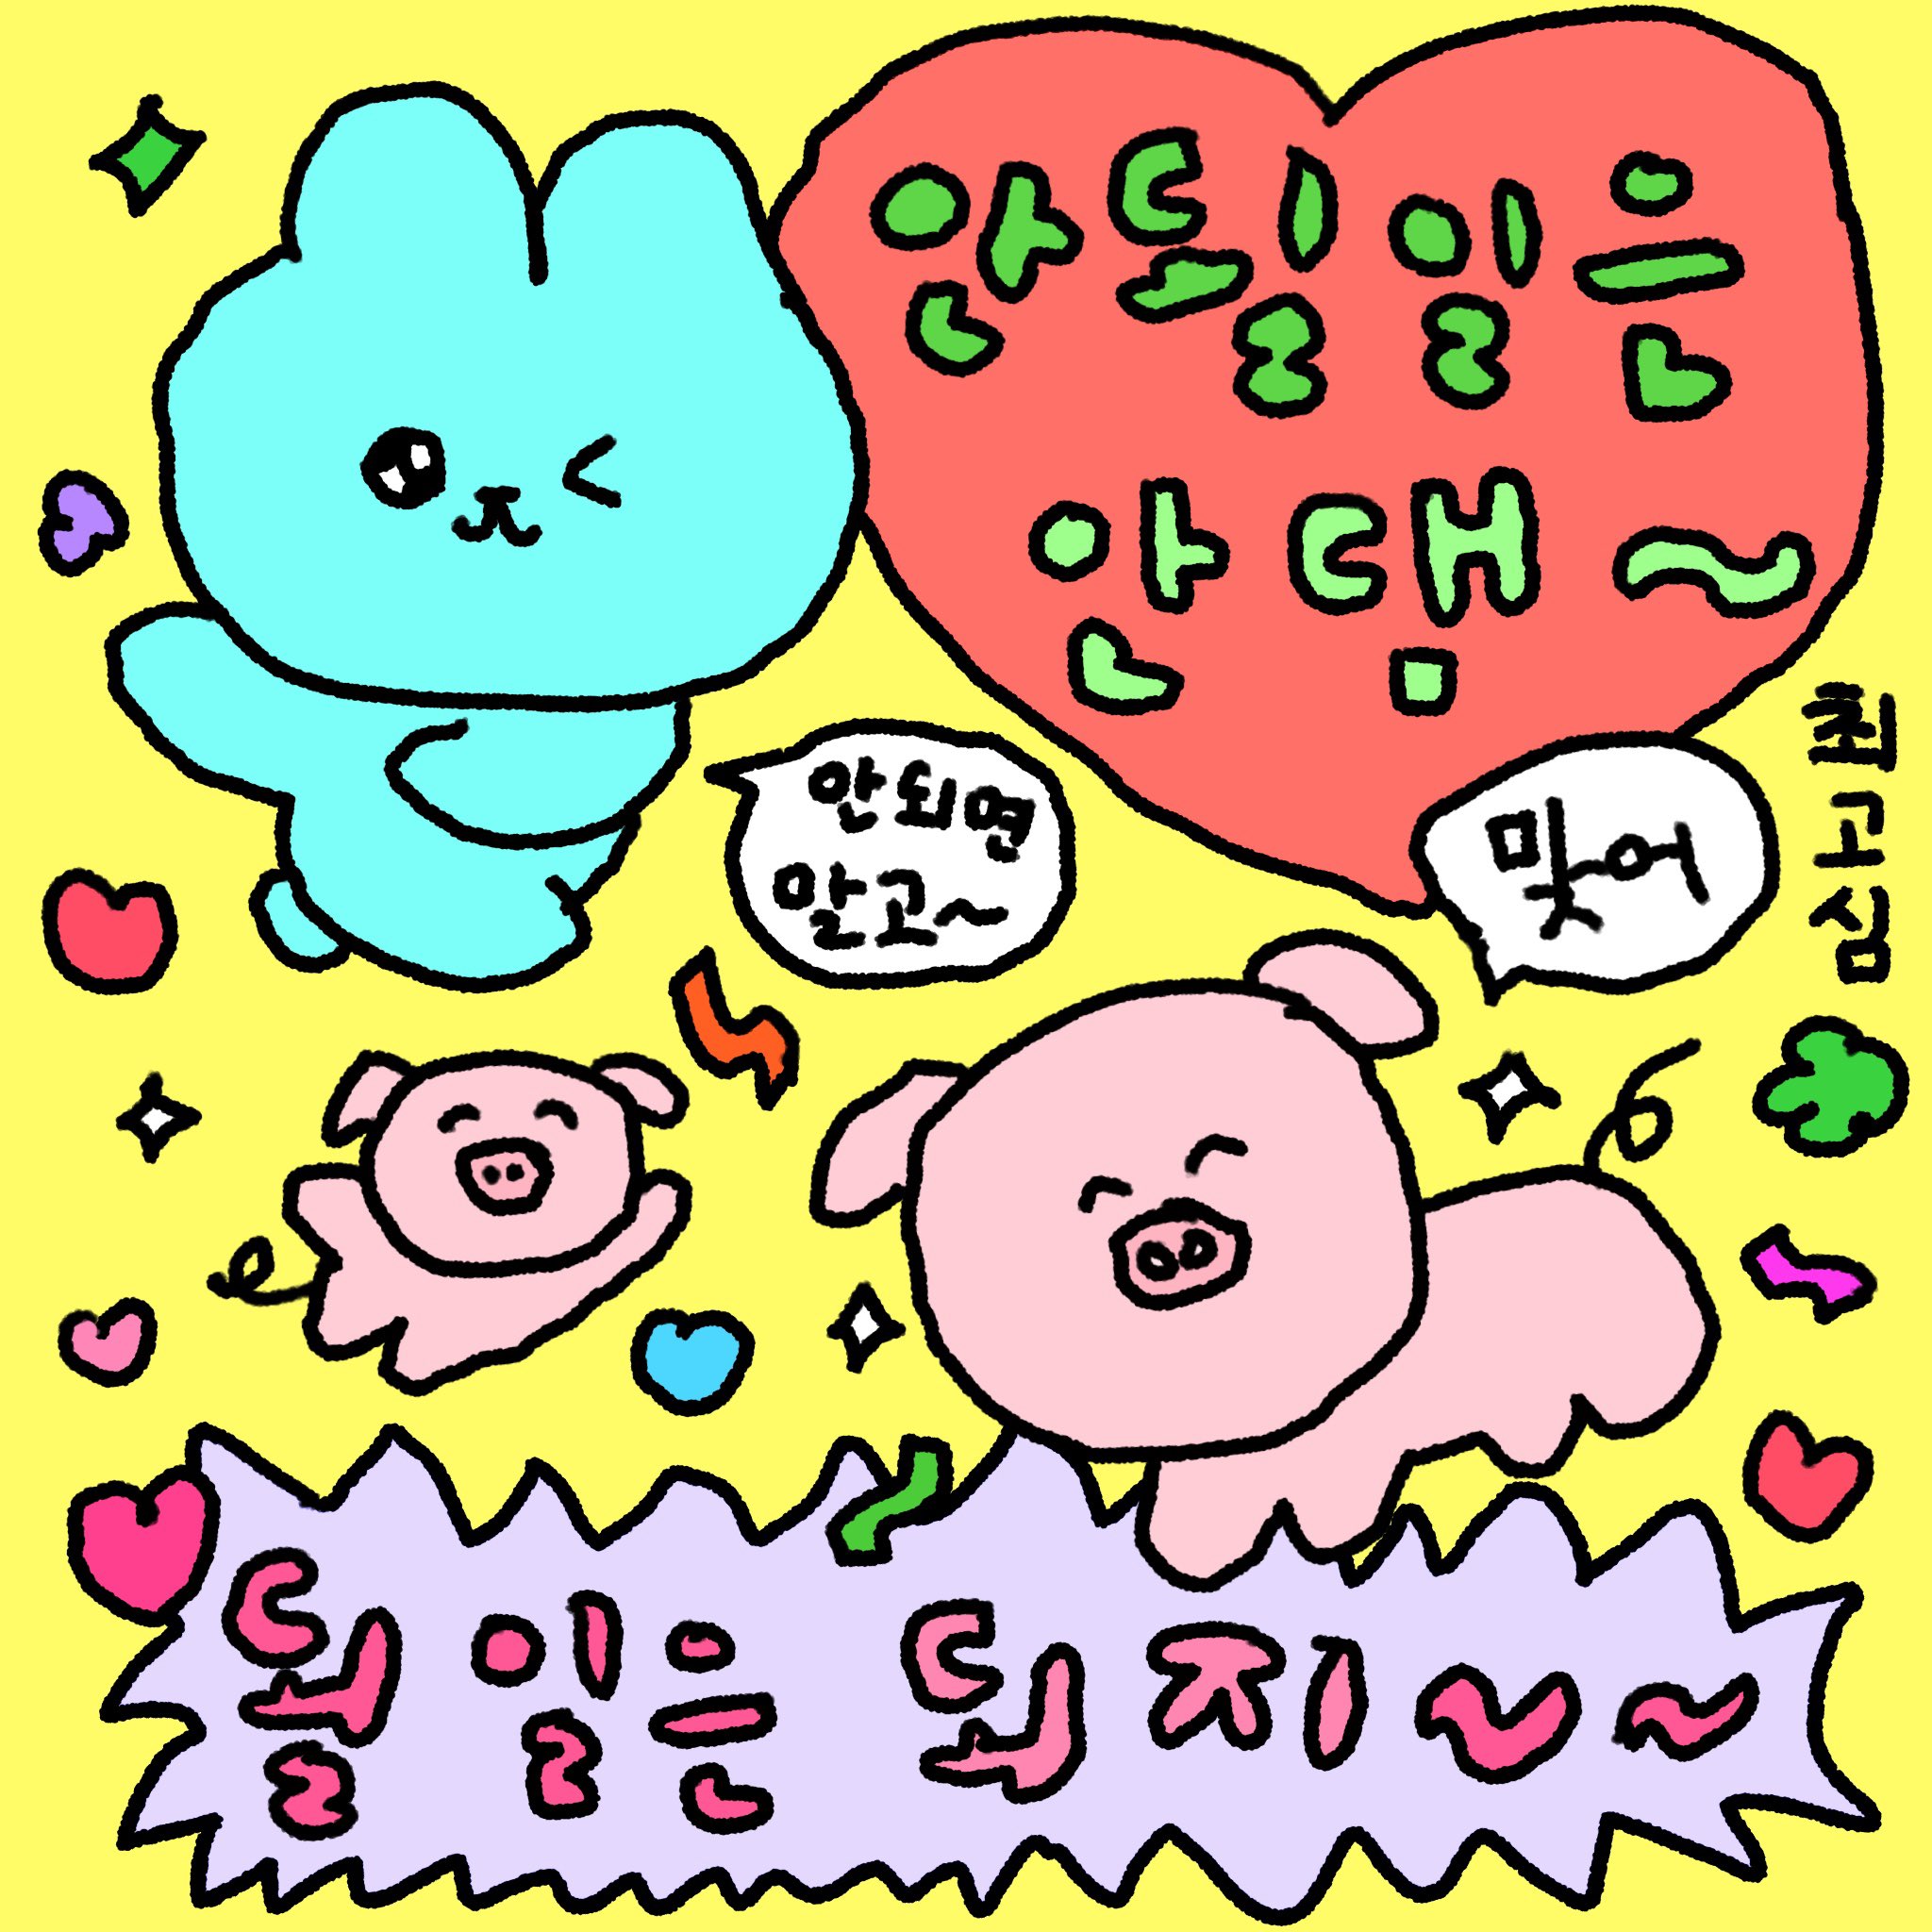 안될일은
안댐~
안되면
말고~
맞어
최고심
될일은 되지~~